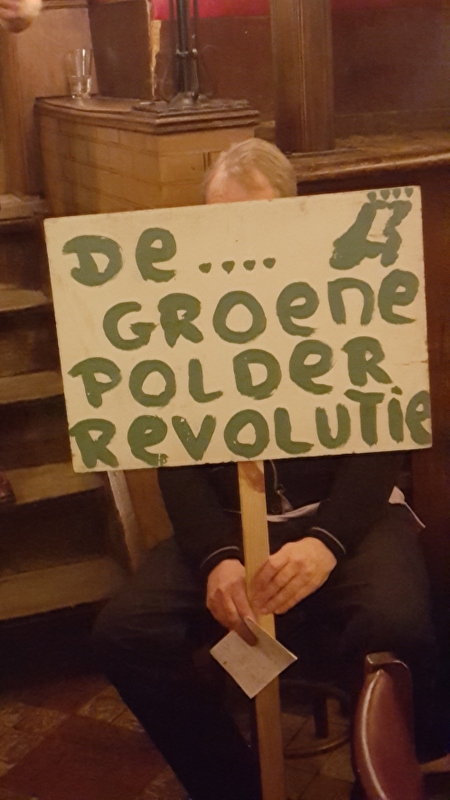 De ....
GROene
POLDeR
ReVOLUTie